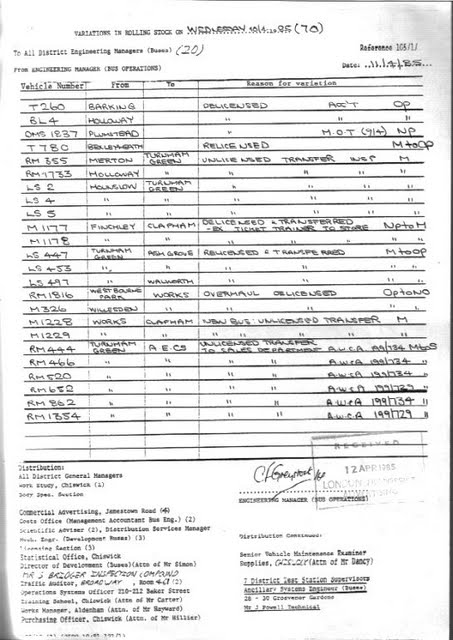 VARIATIONS IN ROLLING STOCK ON WEDNESDAY 10/4 1985 (70)
To All District Engineering Managers (Buses) (20)
Reference 105/1/
From ENGINEERING MANAGER (BUS OPERATIONS)
Date: 11/4/85
Vehicle Number From To Reason for variation
T260 BARKING DELICENSED ACC'T OP
BL4 HOLLOWAY "
DMS 1837 PLUMSTEAD " M.O.T (9/4) NP
T780 BEXLEYHEATH RELICENSED M to OP
RM 355 MERTON TURNHAM GREEN UNLICENSED TRANSFER INSP M
RM 1733 HOLLOWAY " " " " "
LS 2 HOUNSLOW TURNHAM GREEN " " " "
LS 4 " " " " " "
LS 5 " " " " " "
M1177 FINCHLEY CLAPHAM DELICENSED & TRANSFERRED - EX TICKET TRAINER TO STORE NP to M
M1178 " " " " " "
LS 447 TURNHAM GREEN ASH GROVE RELICENSED & TRANSFERRED M to OP
LS 453 " " " " "
LS 497 " WALWORTH " " "
RM1816 WESTBOURNE PARK WORKS OVERHAUL DELICENSED OP to NO
M326 WILLESDEN " " " "
M1228 WORKS CLAPHAM NEW BUS: UNLICENSED TRANSFER M
M1229 " " " " " "
RM444 TURNHAM GREEN A.E.CS UNLICENSED TRANSFER TO SALES DEPARTMENT A.W.C.A 199/734 M to S
RM466 " " " " A.W.C.A 199/734 "
RM520 " " " " A.W.C.A 199/734 "
RM652 " " " " A.W.C.A "
RM862 " " " " A.W.C.A 199/734 "
RM1354 " " " " A.W.C.A 199/729 "
RECEIVED
12 APR 1985
Distribution:
All District General Managers
Work Study, Chiswick (2)
Body Spec. Section
ENGINEERING MANAGER (BUS OPERATIONS)
Commercial Advertising, Jamestown Road (4)
Costs Office (Management Accountant Bus Eng.) (2)
Scientific Adviser (2), Distribution Services Manager
Mech. Engr. (Development Buses) (3)
Licensing Section (3)
Statistical Office, Chiswick
Director of Development (Buses)(Attn of Mr Simon)
MR J BRIDGER INSPECTION COMPOUND
Traffic Auditor, BROADWAY, Room
Operations Systems Officer 210-212 Baker Street
Training School, Chiswick (Attn of Mr Carter)
Works Manager, Aldenham (Attn of Mr Hayward)
Purchasing Officer, Chiswick (Attn of Mr Hillier)
Distribution Continued:
Senior Vehicle Maintenance Examiner
Supplies, CHISWICK (Attn of Mr Dancy)
7 District Test Station Supervisors
Ancillary Systems Engineer (Buses)
28 - 30 Grosvenor Gardens
Mr J Powell Technical